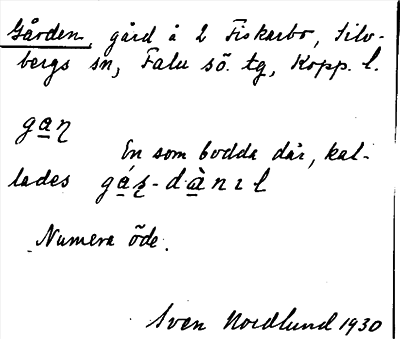 Gården, gård å 2 Fiskarbo, Silv-
bergs sn, Falu sö. tg, Kopp. l.
gaɳ
En som bodde där, kal-
lades gáɳ-dànɪl
Numera öde.
Sven Nordlund 1930